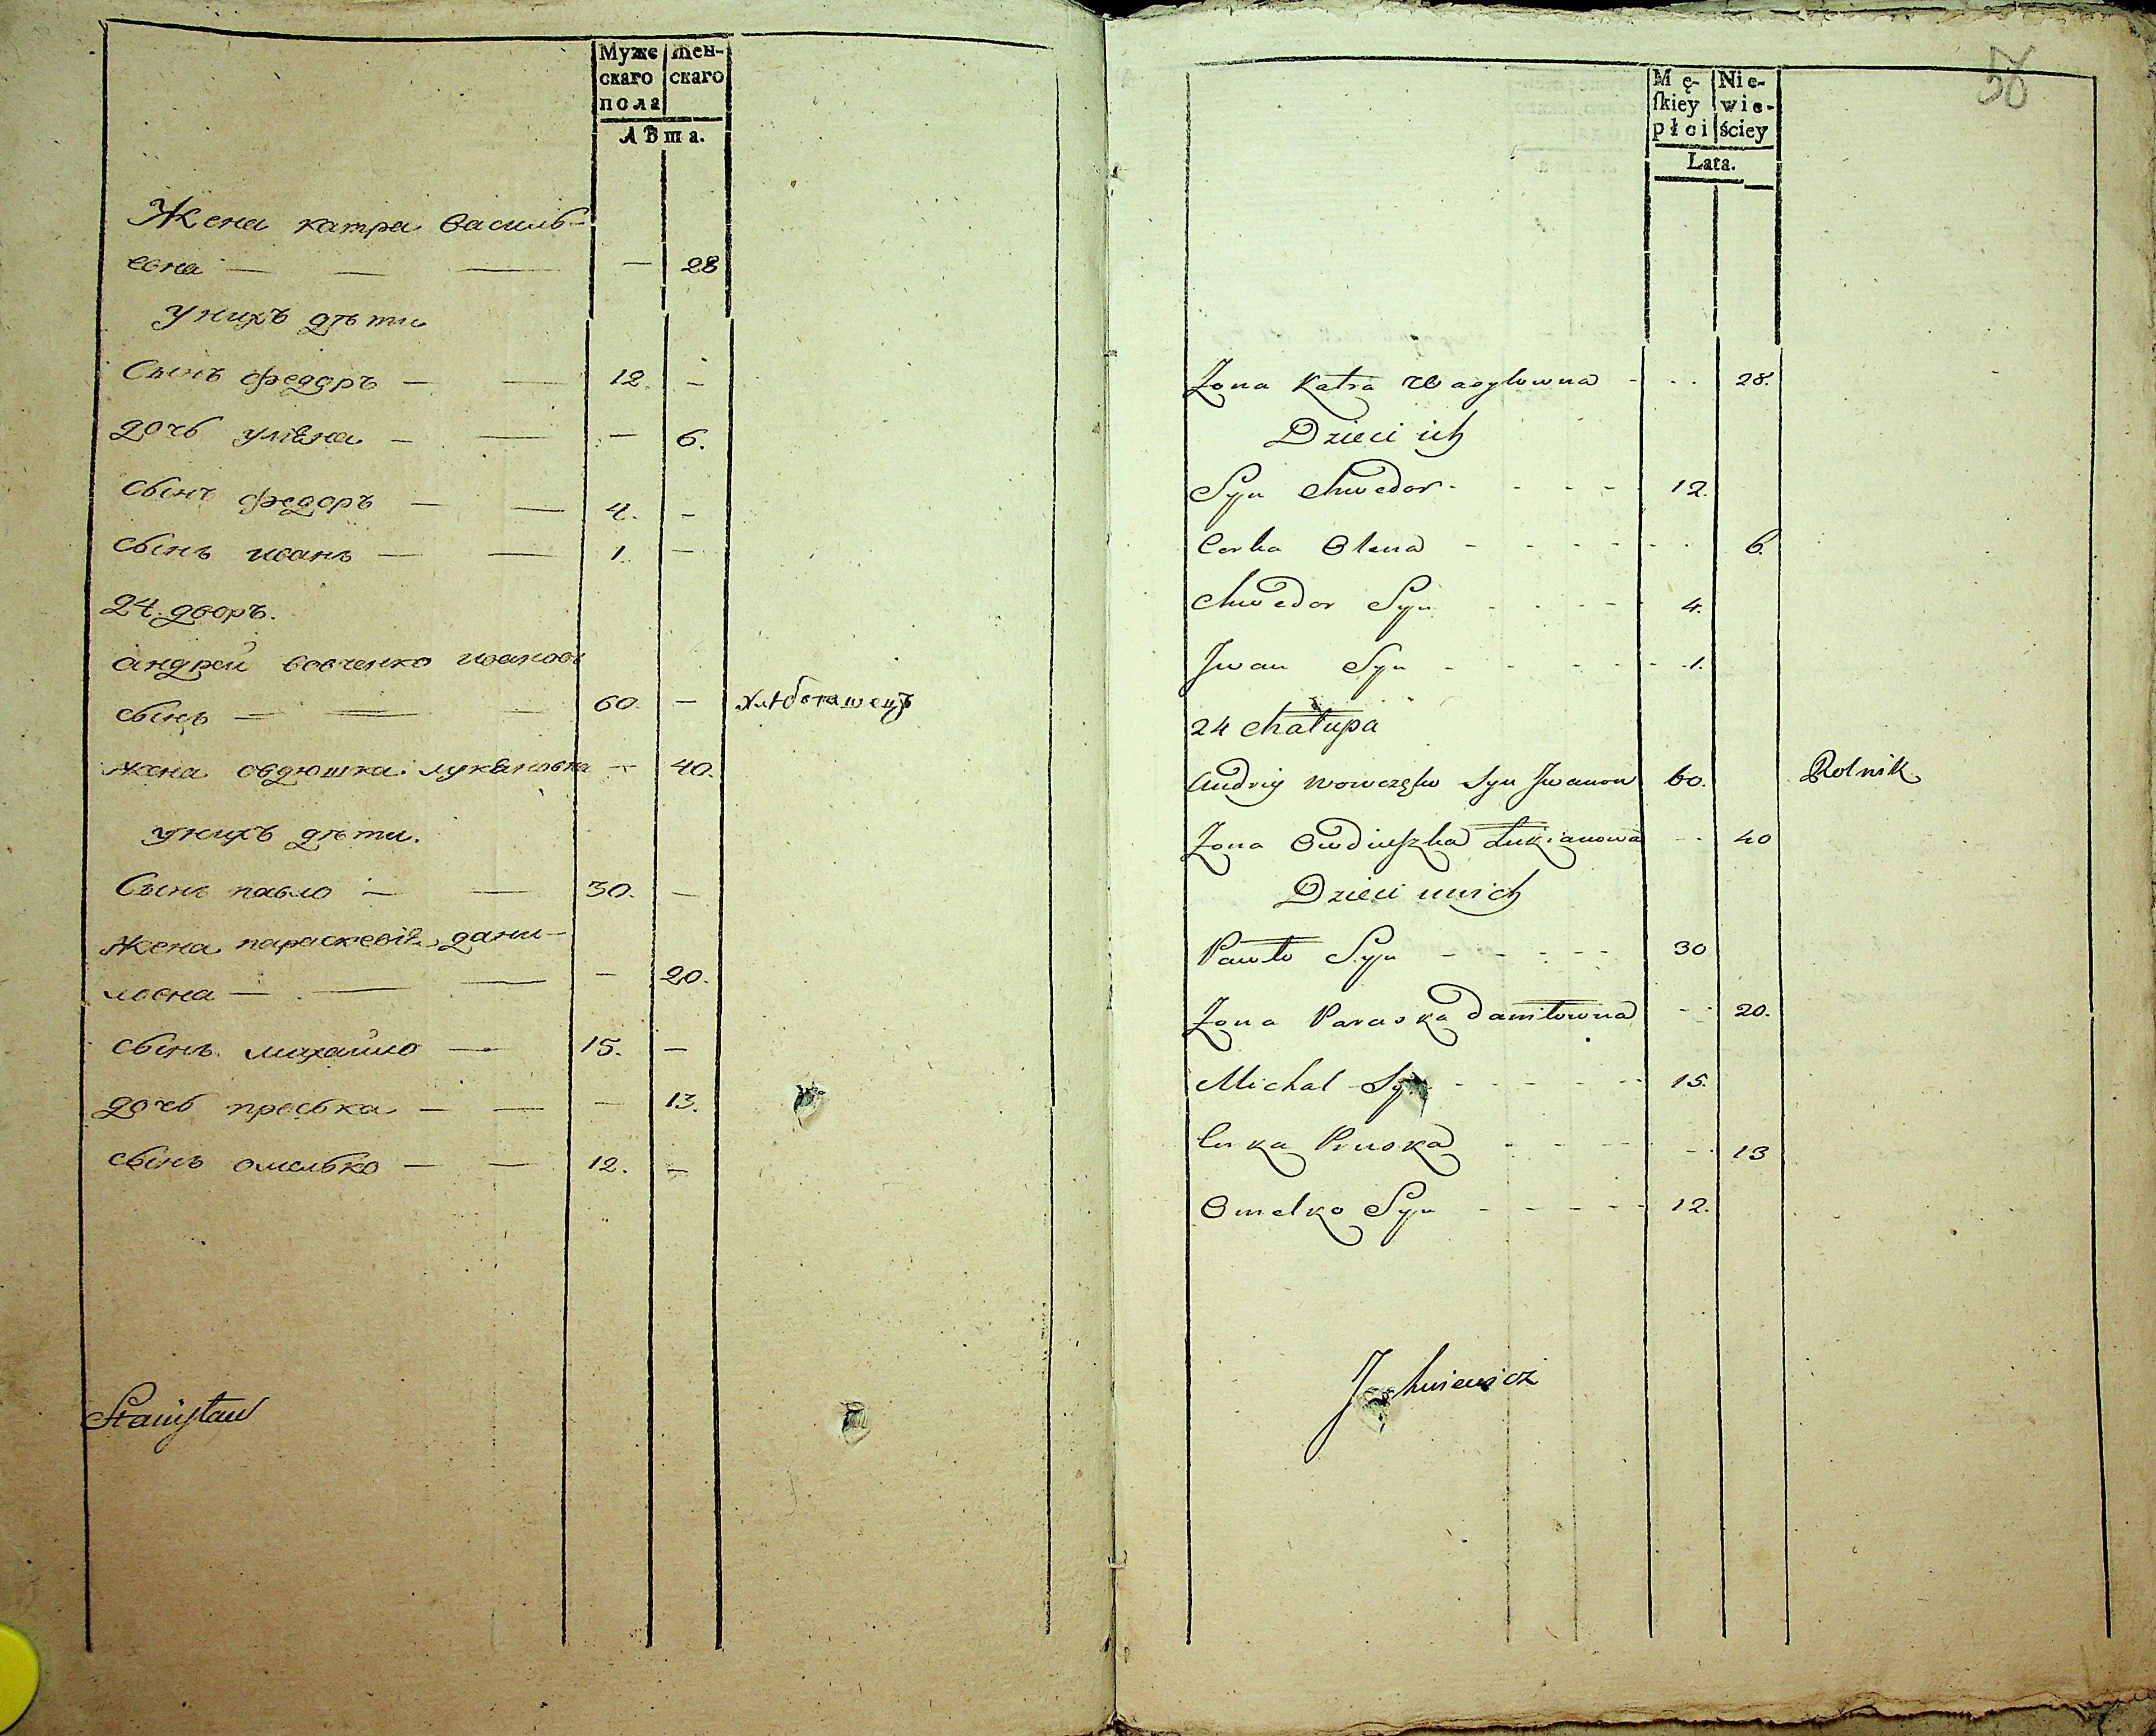 Муже
скаго
пола
жен-
скаго
лѣта.
Жена катра василь-
евна — — — — 28
у нихъ дѣти
Сынъ федоръ — — 12. —
дочь уліѧна — — — 6.
сынъ федоръ — — 4. —
сынъ иванъ — — 1. —
24. дворъ.
андрей вовченко ивановъ
сынъ — — — 60. — хлѣбопашецъ
жена овдюшка лукѧновна — 40.
у нихъ дѣти.
Сынъ павло — — 30. —
Жена параскевіѧ дани-
ловна — — — — 20.
сынъ михайло — 15. —
дочь проська — — — 13.
сынъ омелько — — 12. —
Stanisław
58
Mę-
ſkiey
płci
Nie-
wie-
ściey
Lata.
Zona Katra Wasylowna - . . 28.
Dzieci ich
Syn Chwedor - - - - 12.
Corka Olena - - - - - - 6.
Chwedor Syn - - - - 4.
Jwan Syn - - - - 1.
24 Chałupa
Andriy Wowczęko Syn Jwanow 60. Rolnik
Zona Owdiuszka Łukianowa - - 40
Dzieci unich
Pawło Syn - - - - - 30
Zona Paraska Daniłowna - - 20.
Michal Syn - - - - - 15.
Curka Pruska - - - - - 13
Omelko Syn - - - - - 12.